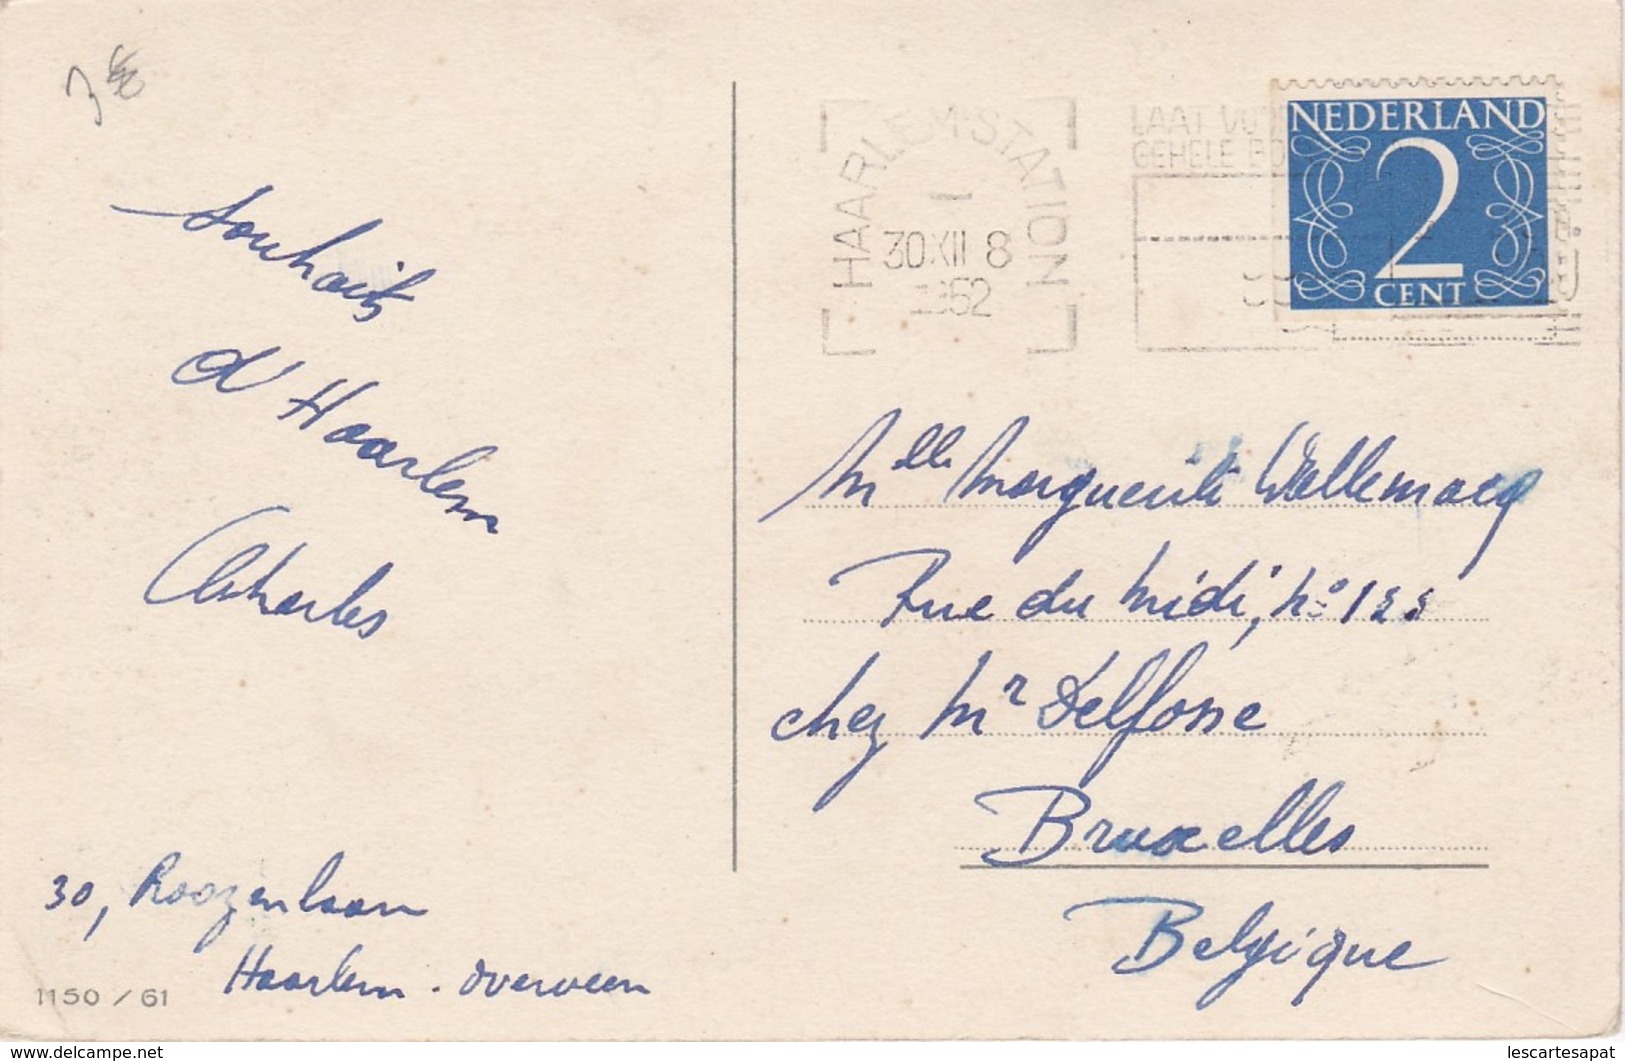 3 €
souhaits
d'Haarlem
Charles
30, Roozenlaan
Haarlem - Overveen
1150 / 61
HAARLEM·STATION
1
30 XII 8
1952
LAAT
GEHELE
NEDERLAND
2
CENT
Mlle Marguerite Wallemacq
Rue du Midi, no 122
chez Mr Delfosse
Bruxelles
Belgique
www.delcampe.net
lescartesapat